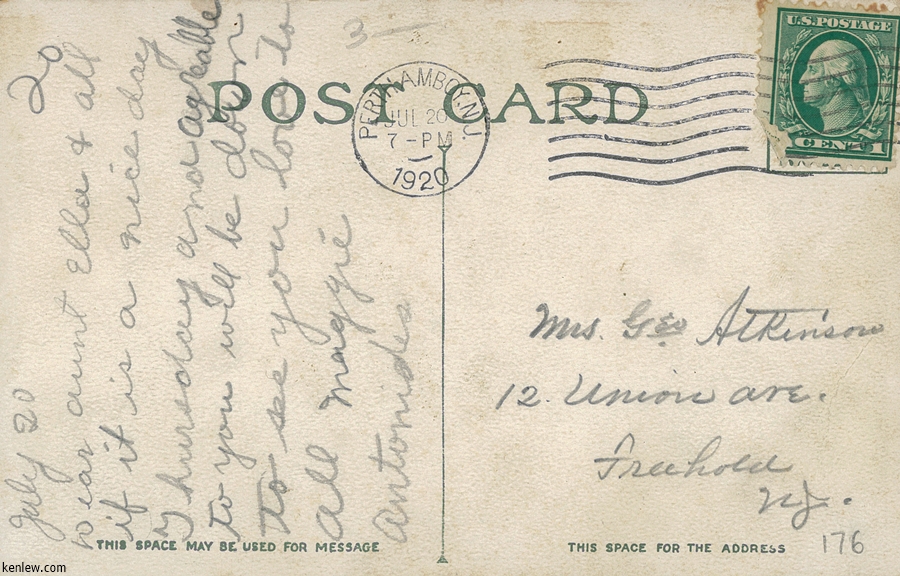 POST CARD
U.S. POSTAGE
CENT 1
PERTH AMBOY, N.J.
JUL 20
7 - PM
1920
3 —
20
July 20
Dear aunt Ella & all
if it is a nice day
Thursday and agreable
to you will be down
to see you love to
all Maggie
Antonides
Mrs. Geo Atkinson
12. Union ave.
Freehold
N.J.
THIS SPACE MAY BE USED FOR MESSAGE
THIS SPACE FOR THE ADDRESS
176
kenlew.com